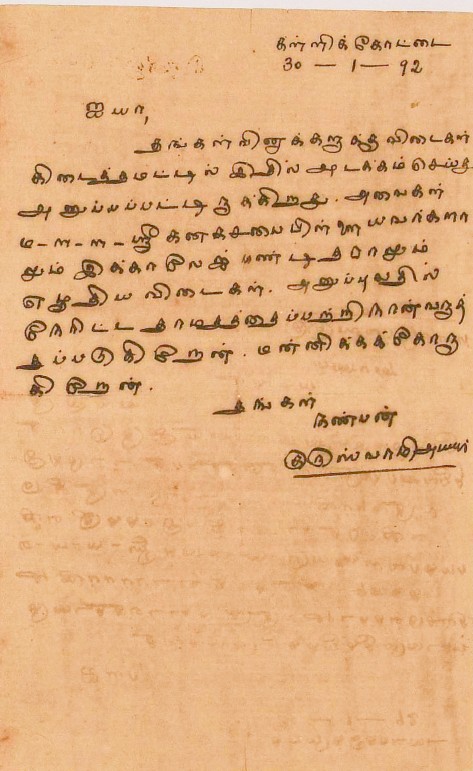 கள்ளிக்கோட்டை
30 — 1 — 92
ஐயா,
தங்கள் வினுக்களுக்கு விடைகள்
கிடைத்தமட்டில் இதில் அடக்கம்செய்து
அனுப்பப்பட்டிருக்கிறது. அவைகள்
ம-ள-ள-ஸ்ரீ கனகசபைபிள்ளையவர்களா
லும் இக்காலேஜ் பண்டிதராலும்
எழுதிய விடைகள். அனுப்புவதில்
நேரிட்ட தாமதத்தைப்பற்றி நான்வருத்
தப்படுகிறேன். மன்னிக்கக்கோறு
கிறேன்.
தங்கள்
நண்பன்
குருஸ்வாமிஅய்யர்